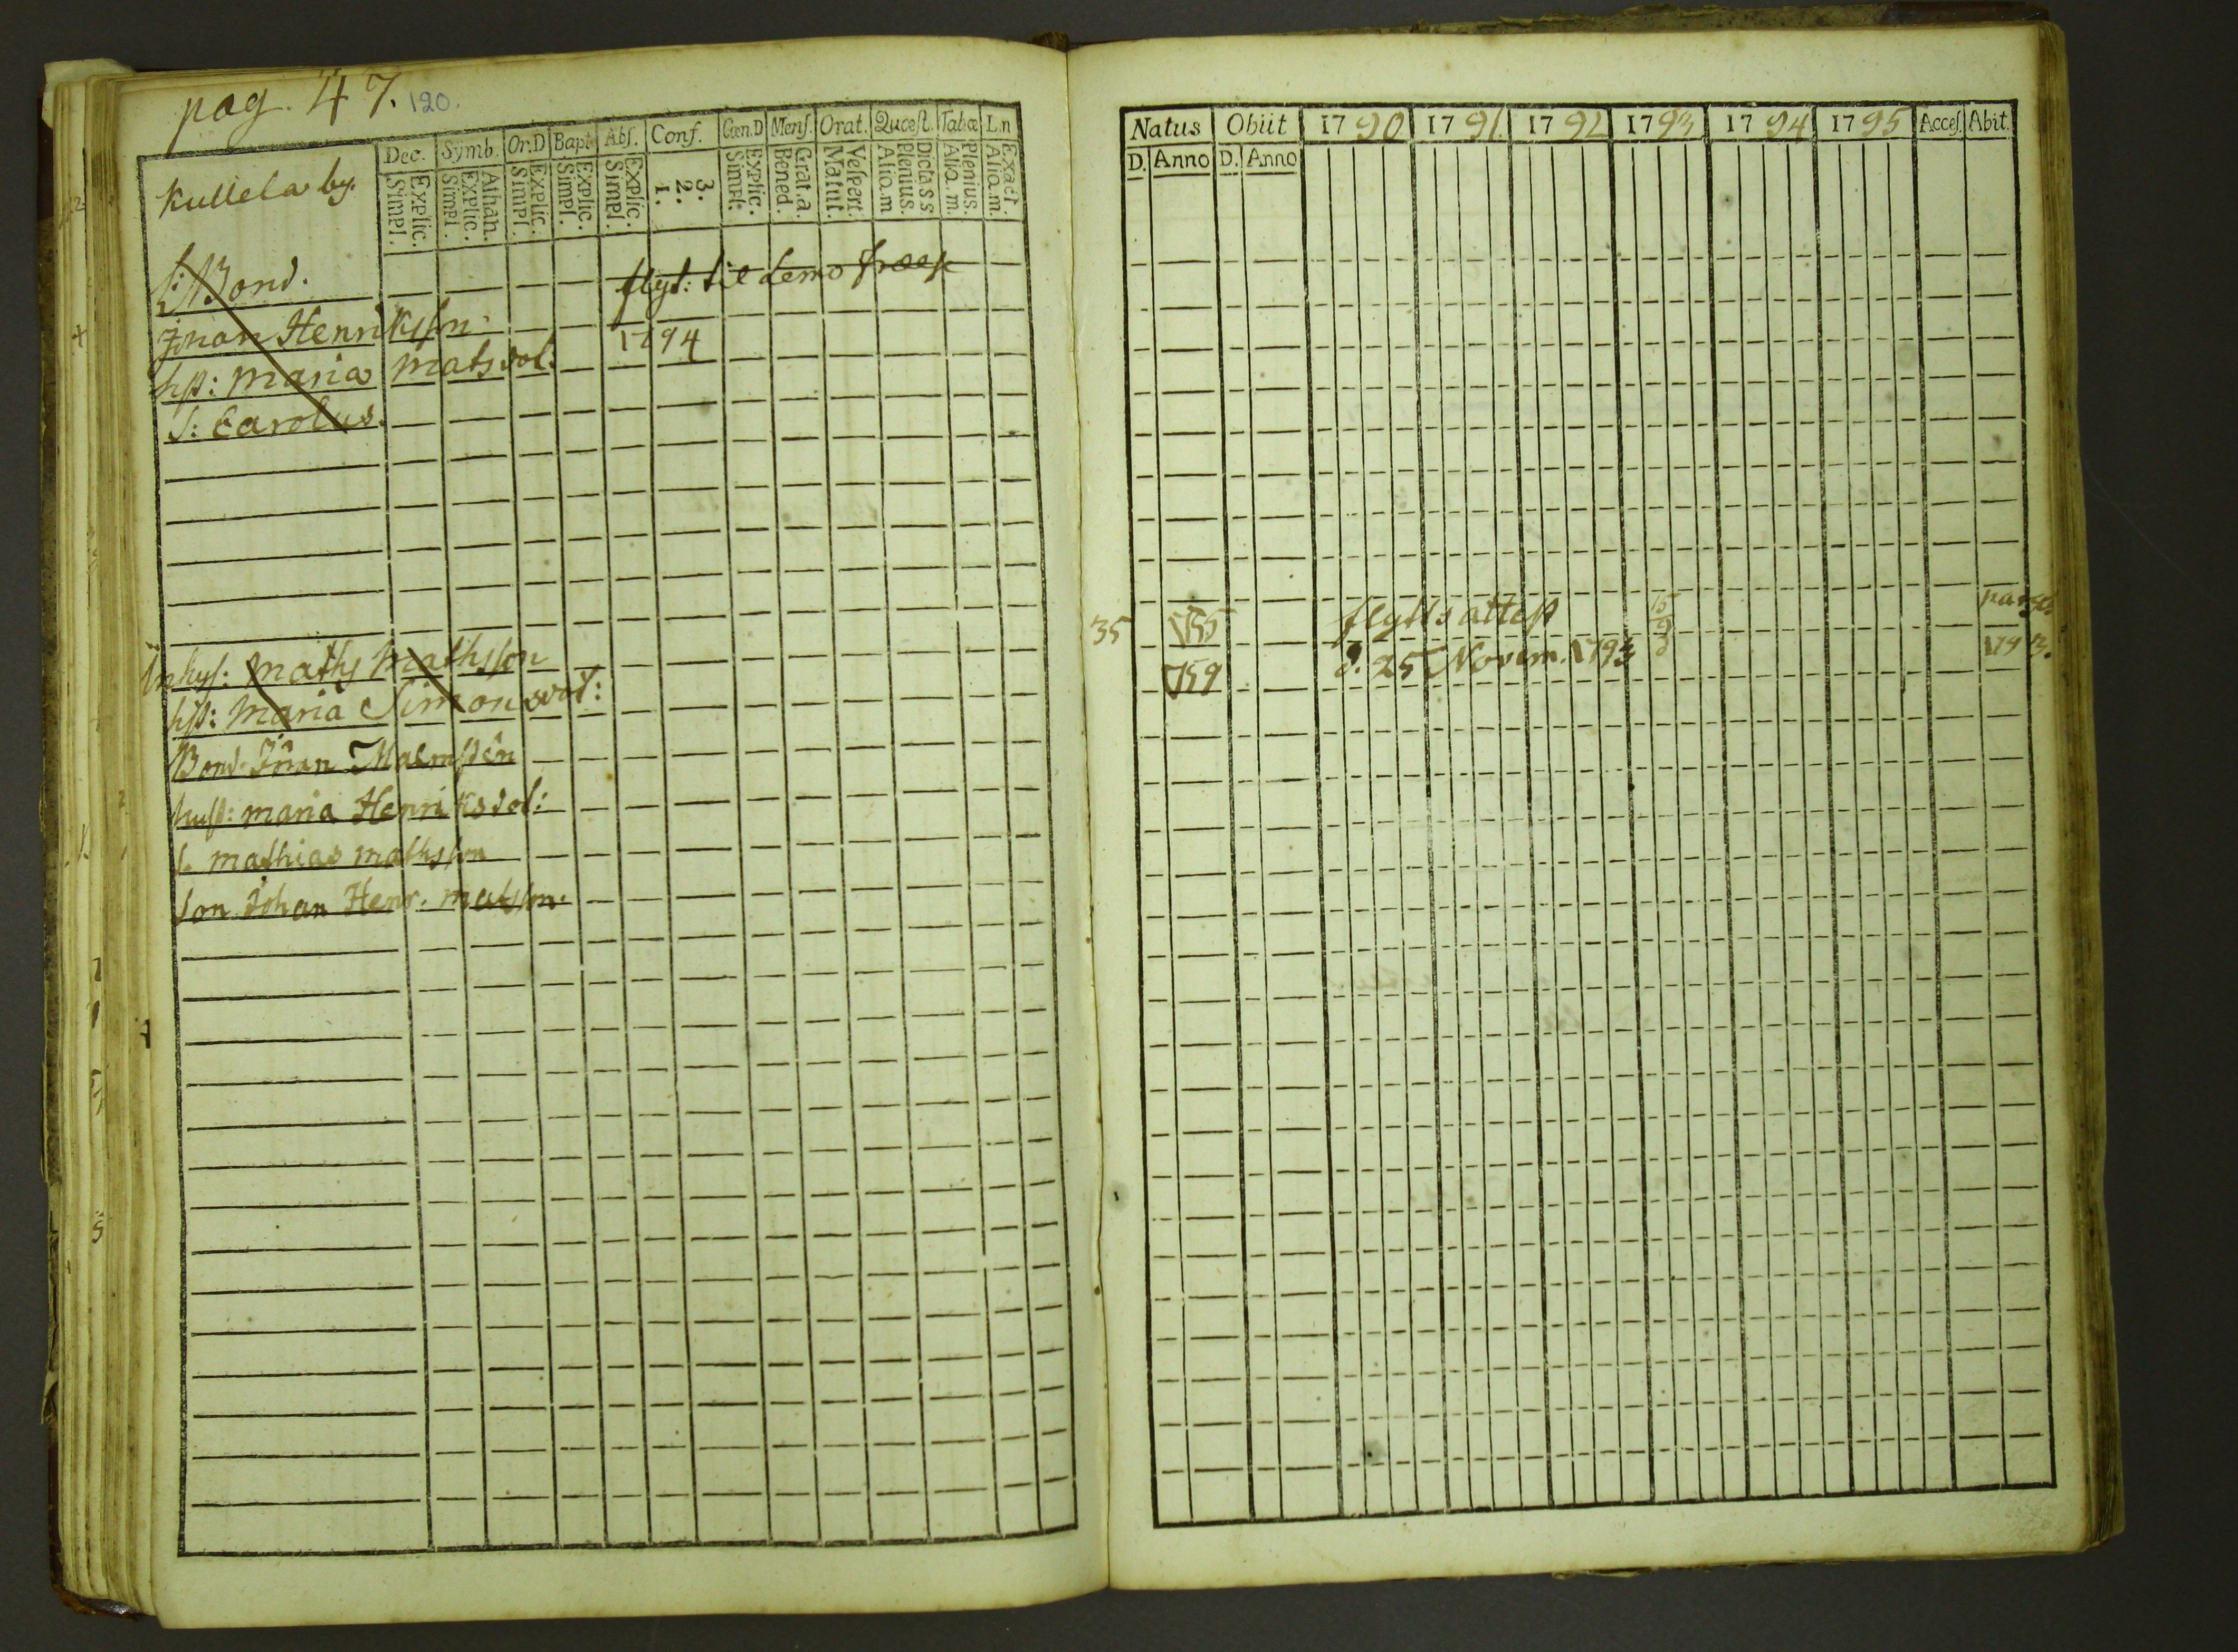 pag. 47. 120.
Kullela by.
Dec. Symb. Or.D Bapt. Abs. Conf. Cœn.D Mens. Orat. Quæst. Tabæ L.n
Simpl. Explic. Simpl. Explic. Athan. Simpl. Explic. Simpl. Explic. Simpl. Explic. 1. 2. 3. Simpl. Explic. Bened. Grat.a. Matut. Vespert. Alio.m Plenius. Dicta s s Alio.m. Plenius. Alio.m. Exact.
Bond. flyt: til Lemo
Johan Henriksson
hst: Maria Matsdot. 1794
S: Carolus.
Inhys: Maths Mathsson
hst: Maria Simonsdot:
Bond. Johan Malmsten
hust: Maria Henriksdot:
S. Mathias Mathsson
Son Johan Henr. Matsson.
Natus Obiit 1790 1791 1792 1793 1794 1795 Acces. Abit.
D. Anno D. Anno
35 1755 flytts attest 15
1759 d. 25 Novem. 1793 1793.